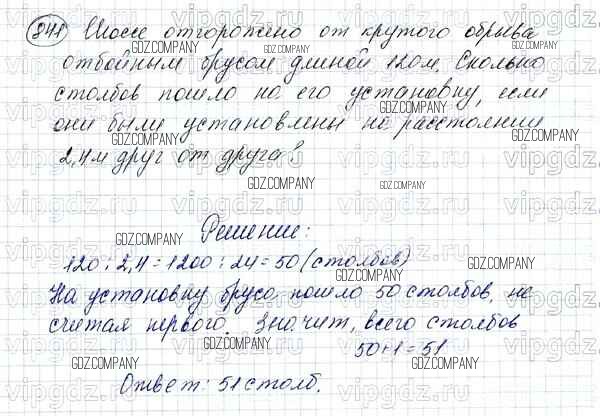 841 Шоссе отгорожено от крутого обрыва
отбойным брусом длиной 120м. Сколько
столбов пошло на его установку, если
они были установлены на расстоянии
2,4м друг от друга?
Решение:
120 : 2,4 = 1200 : 24 = 50 (столбов)
На установку бруса пошло 50 столбов, не
считая первого. Значит, всего столбов
50+1=51
Ответ: 51 столб.
GDZ.COMPANY
vipgdz.ru